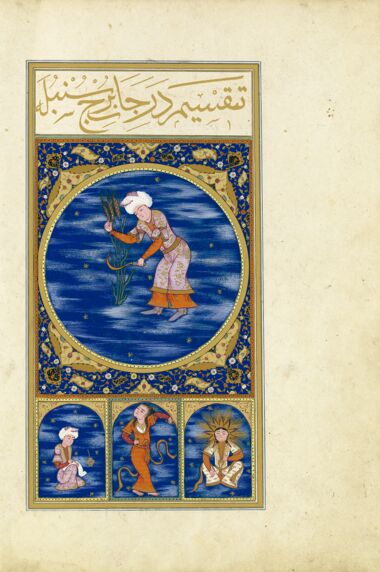 تقسیم درجا برج سنبله